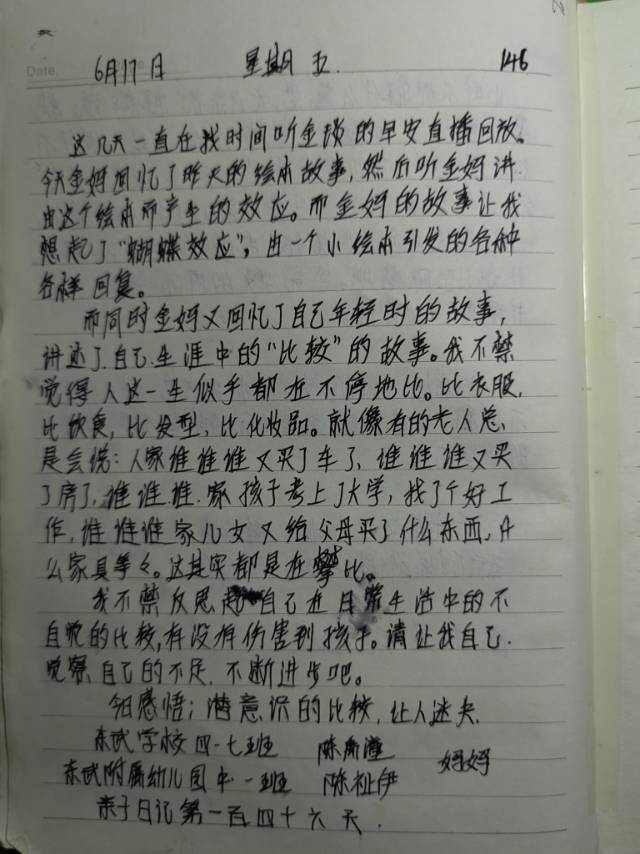 Date.
6月17日 星期五. 146
这几天一直在找时间听金琰的早安直播回放。
今天金妈回忆了昨天的绘本故事,然后听金妈讲
由这个绘本而产生的效应。而金妈的故事让我
想起了“蝴蝶效应”,由一个小绘本引发的各种
各样回复。
而同时金妈又回忆了自己年轻时的故事,
讲述了自己生涯中的“比较”的故事。我不禁
觉得人这一生似乎都在不停地比。比衣服,
比饮食,比发型,比化妆品。就像有的老人总
是会说:人家谁谁谁又买了车了,谁谁谁又买
了房了,谁谁谁家孩子考上了大学,找了个好工
作,谁谁谁家儿女又给父母买了什么东西,什
么家具等々。这其实都是在攀比。
我不禁反思起自己在日常生活中的不
自觉的比较,有没有伤害到孩子。请让我自己
觉察自己的不足,不断进步吧。
今日感悟:潜意识的比较,让人迷失.
东武学校四·七班 陈 妈妈
东武附属幼儿园中·一班 陈祉伊
亲子日记第一百四十六天.